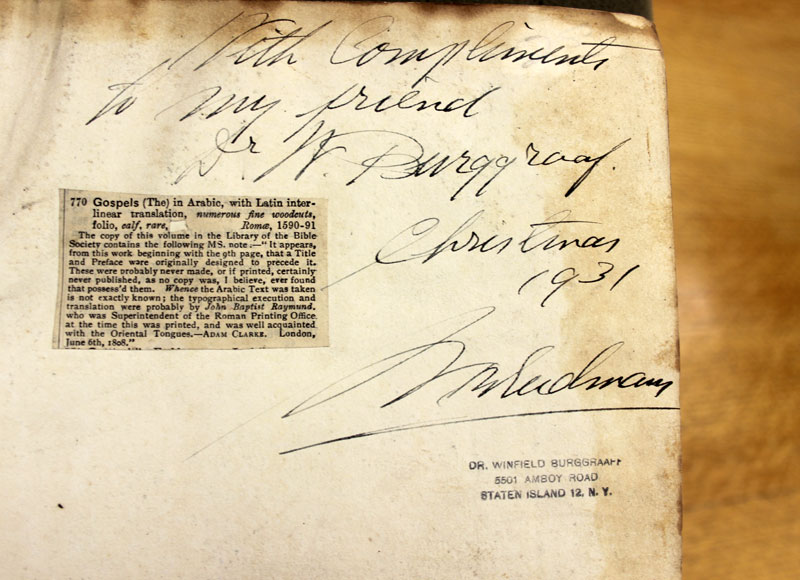 With Compliments
to my friend
Dr. W. Burggraaf.
Christmas
1931
770 Gospels (The) in Arabic, with Latin inter-
linear translation, numerous fine woodcuts,
folio, calf, rare, Romæ, 1590-91
The copy of this volume in the Library of the Bible
Society contains the following MS. note:—"It appears,
from this work beginning with the 9th page, that a Title
and Preface ware originally designed to precede it.
These were probably never made, or if printed, certainly
never published, as no copy was, I believe, ever found
that possess'd them. Whence the Arabic Text was taken
is not exactly known; the typographical execution and
translation were probably by John Baptist Raymund,
who was Superintendent of the Roman Printing Office
at the time this was printed, and was well acquainted
with the Oriental Tongues.—ADAM CLARKE. London,
June 6th, 1808."
DR. WINFIELD BURGGRAAFF
5501 AMBOY ROAD
STATEN ISLAND 12, N. Y.